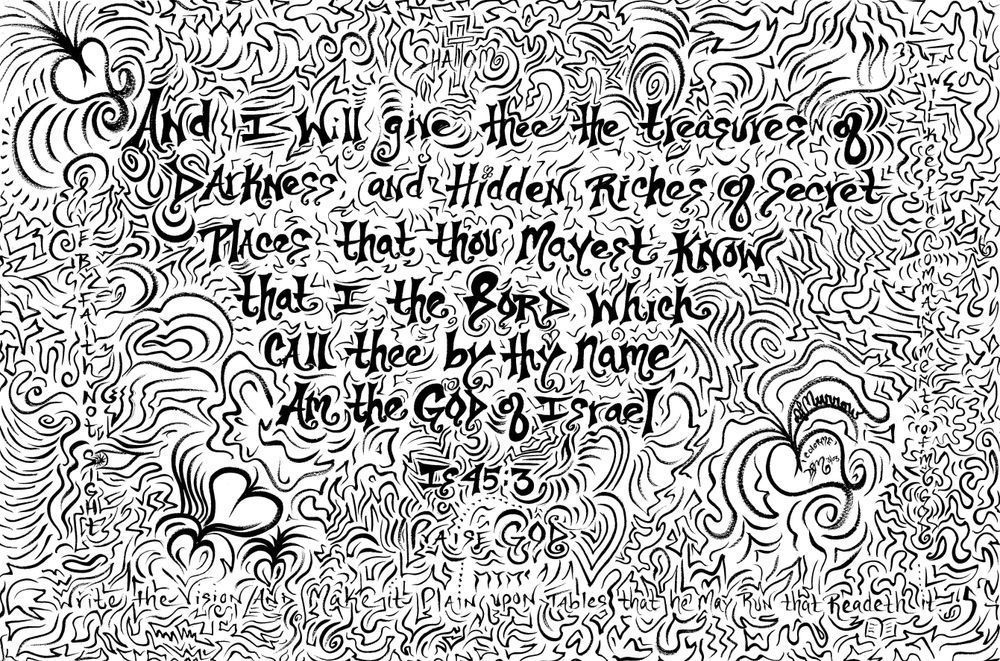 SHALOM
And I will give thee the treasures of
DArkNess and Hidden Riches of Secret
PlAces that thou Mayest KNOW
that I the LORD which
CAll thee by thy name
Am the GOD of Israel
Is 45:3
PRAISE GOD
Write the Vision AND Make it Plain upon Tables that he May Run that Readeth it
LIVE BY FAITH NOT SIGHT
I WILL KEEP THE COMMANDMENTS OF MY GOD